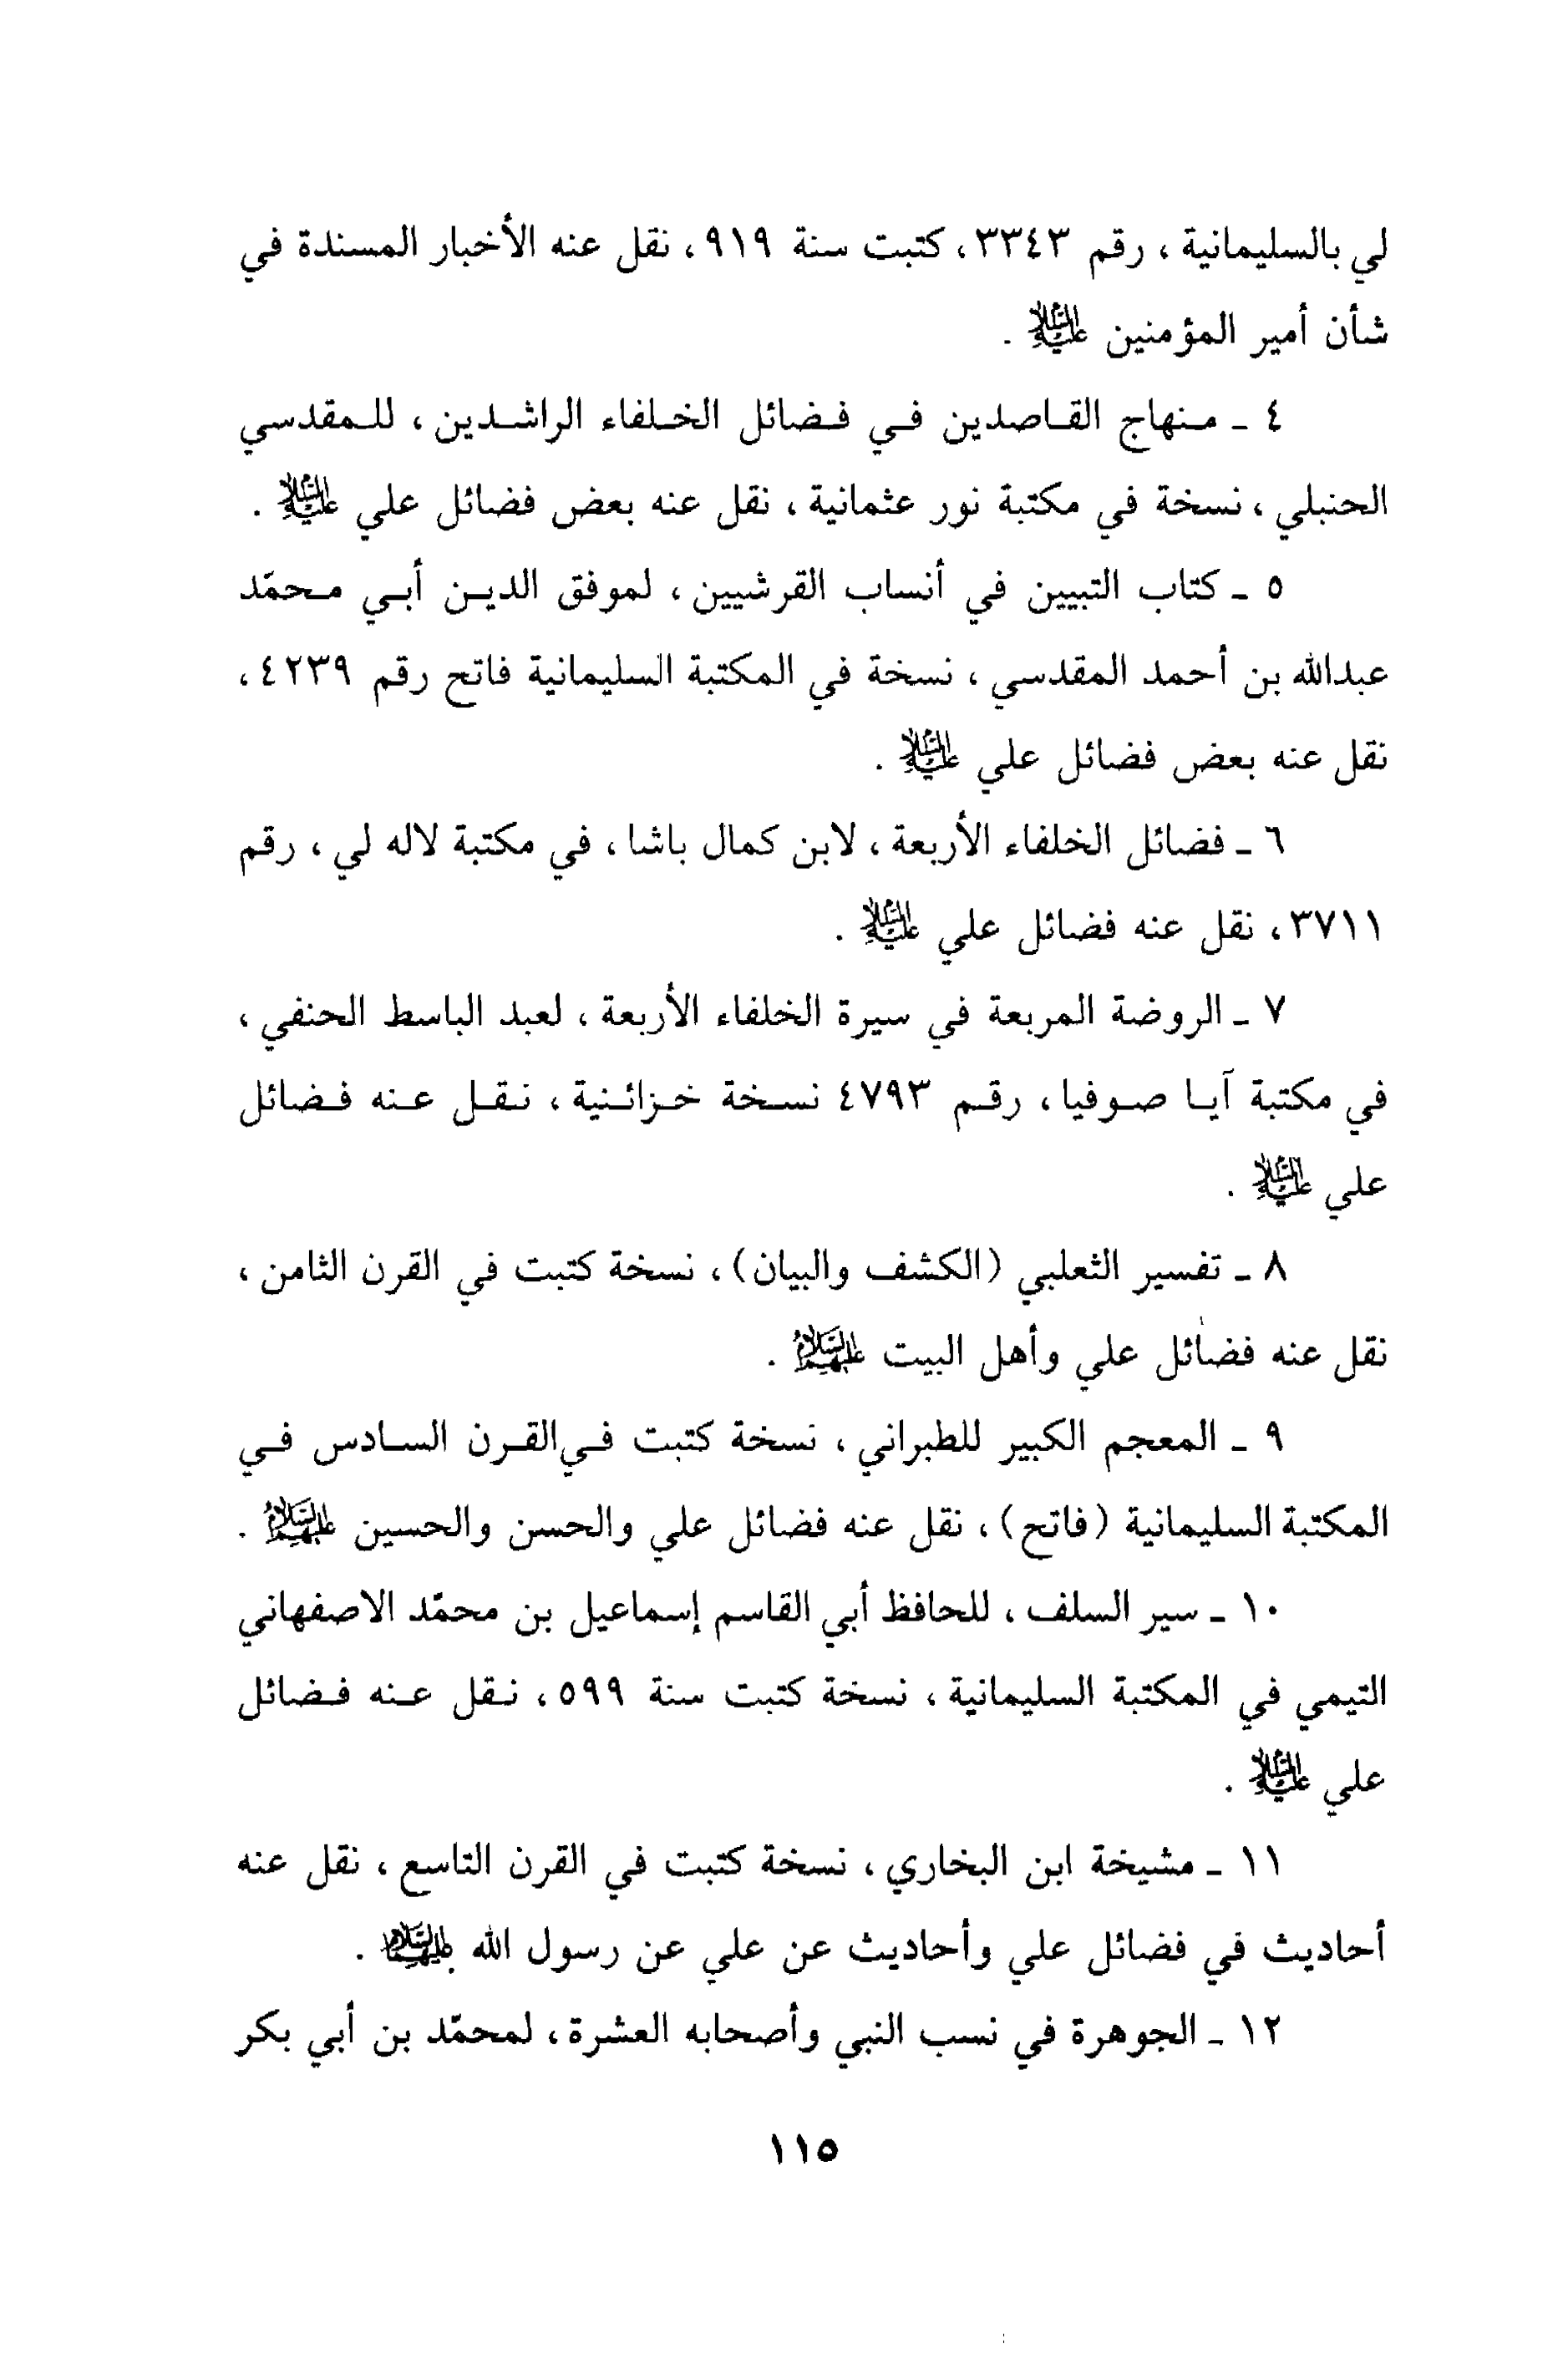 لي بالسليمانية ، رقم ٣٣٤٣، كتبت سنة ٩١٩، نقل عنه الأخبار المسندة في
شأن أمير المؤمنين عليه السلام .
٤ ـ منهاج القاصدين في فضائل الخلفاء الراشدين ، للمقدسي
الحنبلي ، نسخة في مكتبة نور عثمانية ، نقل عنه بعض فضائل علي عليه السلام .
٥ ـ كتاب التبيين في أنساب القرشيين ، لموفق الدين أبي محمّد
عبدالله بن أحمد المقدسي ، نسخة في المكتبة السليمانية فاتح رقم ٤٢٣٩ ،
نقل عنه بعض فضائل علي عليه السلام .
٦ ـ فضائل الخلفاء الأربعة ، لابن كمال باشا ، في مكتبة لاله لي ، رقم
٣٧١١، نقل عنه فضائل علي عليه السلام .
٧ ـ الروضة المربعة في سيرة الخلفاء الأربعة ، لعبد الباسط الحنفي ،
في مكتبة آيا صوفيا ، رقم ٤٧٩٣ نسخة خزائنية ، نقل عنه فضائل
علي عليه السلام .
٨ ـ تفسير الثعلبي (الكشف والبيان) ، نسخة كتبت في القرن الثامن ،
نقل عنه فضائل علي وأهل البيت عليهم السلام .
٩ ـ المعجم الكبير للطبراني ، نسخة كتبت في القرن السادس في
المكتبة السليمانية (فاتح) ، نقل عنه فضائل علي والحسن والحسين عليهم السلام .
١٠ ـ سير السلف ، للحافظ أبي القاسم إسماعيل بن محمّد الاصفهاني
التيمي في المكتبة السليمانية ، نسخة كتبت سنة ٥٩٩، نقل عنه فضائل
علي عليه السلام .
١١ ـ مشيخة ابن البخاري ، نسخة كتبت في القرن التاسع ، نقل عنه
أحاديث في فضائل علي وأحاديث عن علي عن رسول الله .
١٢ ـ الجوهرة في نسب النبي وأصحابه العشرة ، لمحمّد بن أبي بكر
١١٥